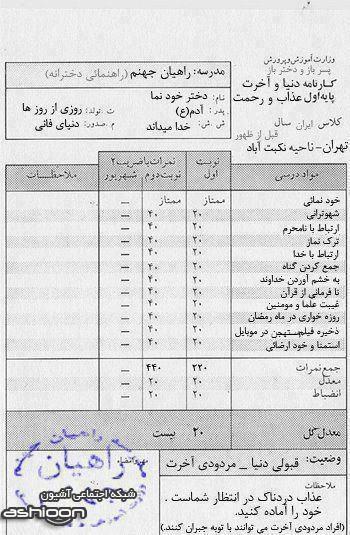 وزارت آموزش و پرورش
پسر باز و دختر باز
کارنامه دنیا و آخرت
پایه اول عذاب و رحمت
کلاس ایران سال
قبل از ظهور
تهران - ناحیه نکبت آباد
مدرسه: راهیان جهنم (راهنمائی دخترانه)
نام: دختر خود نما
پدر: آدم(ع) ت. تولد: روزی از روز ها
ش. ش: خدا میداند م. صدور: دنیای فانی
مواد درسی نوبت اول نمرات باضریب ۲ نوبت دوم شهریور ملاحظات
خود نمائی ممتاز ممتاز —
شهوترانی ۲۰ ۴۰ —
ارتباط با نامحرم ۲۰ ۴۰ —
ترک نماز ۲۰ ۴۰ —
ارتباط با خدا ۲۰ ۴۰ —
جمع کردن گناه ۲۰ ۴۰ —
به خشم آوردن خداوند ۲۰ ۴۰ —
نا فرمانی از قرآن ۲۰ ۴۰ —
غیبت علما و مومنین ۲۰ ۴۰ —
روزه خواری در ماه رمضان ۲۰ ۴۰ —
ذخیره فیلم مستهجن در موبایل ۲۰ ۴۰ —
استمنا و خود ارضائی ۲۰ ۴۰ —
جمع نمرات ۲۲۰ ۴۴۰ —
معدل ۲۰ ۲۰ —
انضباط ۲۰ ۲۰ —
معدل کل ۲۰ بیست
وضعیت: قبولی دنیا _ مردودی آخرت
مهر و امضاء
ملاحظات
عذاب دردناک در انتظار شماست.
خود را آماده کنید.
(افراد مردودی آخرت می توانند با توبه جبران کنند.)
راهیان
شبکه اجتماعی آشیون
ashioon